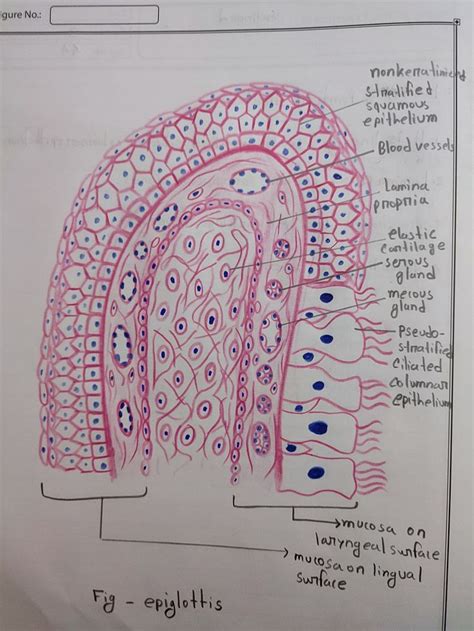 igure No.:
nonkerratinized
stratified
squamous
epithelium
Blood vessels
Lamina
propria
elastic
cartilage
serous
gland
mucous
gland
pseudo-
stratified
ciliated
columnar
epithelium
mucosa on
laryngeal surface
mucosa on lingual
surface
Fig - epiglottis